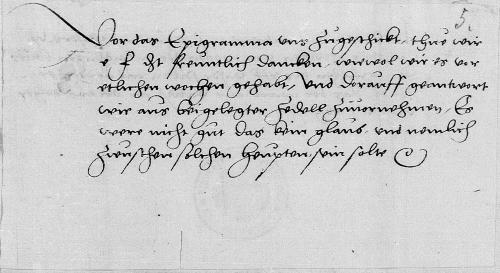 5.
Vor das Epigramma vns zugeschickt, thue wir
e f dht freuntlich dancken, wiewol wir es vor
etlichen wochen gehabt, Vnd dorauff geantwort
wie aus beigelegter Zedell zuuornehmen, Es
were nicht gut das kein glaub, vnd nemlich
zwuschen solchen heupten, sein solte